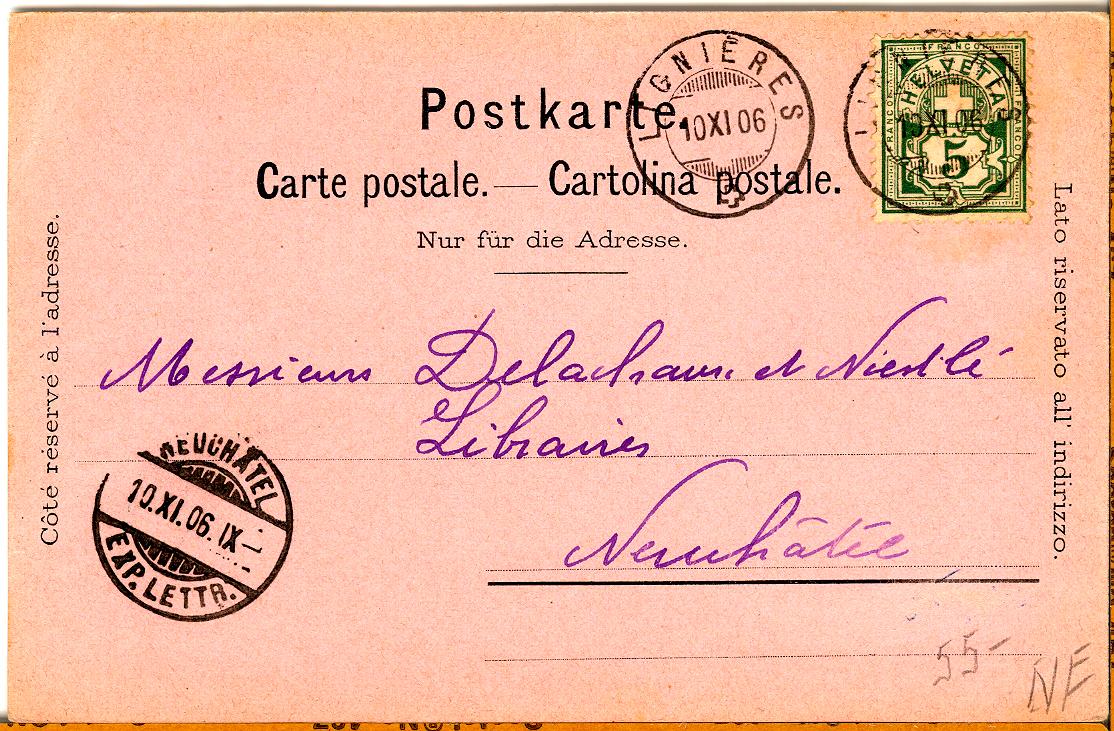 Postkarte.
Carte postale. — Cartolina postale.
Nur für die Adresse.
LIGNIÈRES
10 XI 06
FRANCO
HELVETIA
FRANCO
FRANCO
5
XI 06
Côté réservé à l'adresse.
Lato riservato all' indirizzo.
Messieurs Delachaux et Niestlé
Libraires
Neuchâtel
NEUCHÂTEL
10.XI.06. IX–
EXP. LETTR.
55-
NE